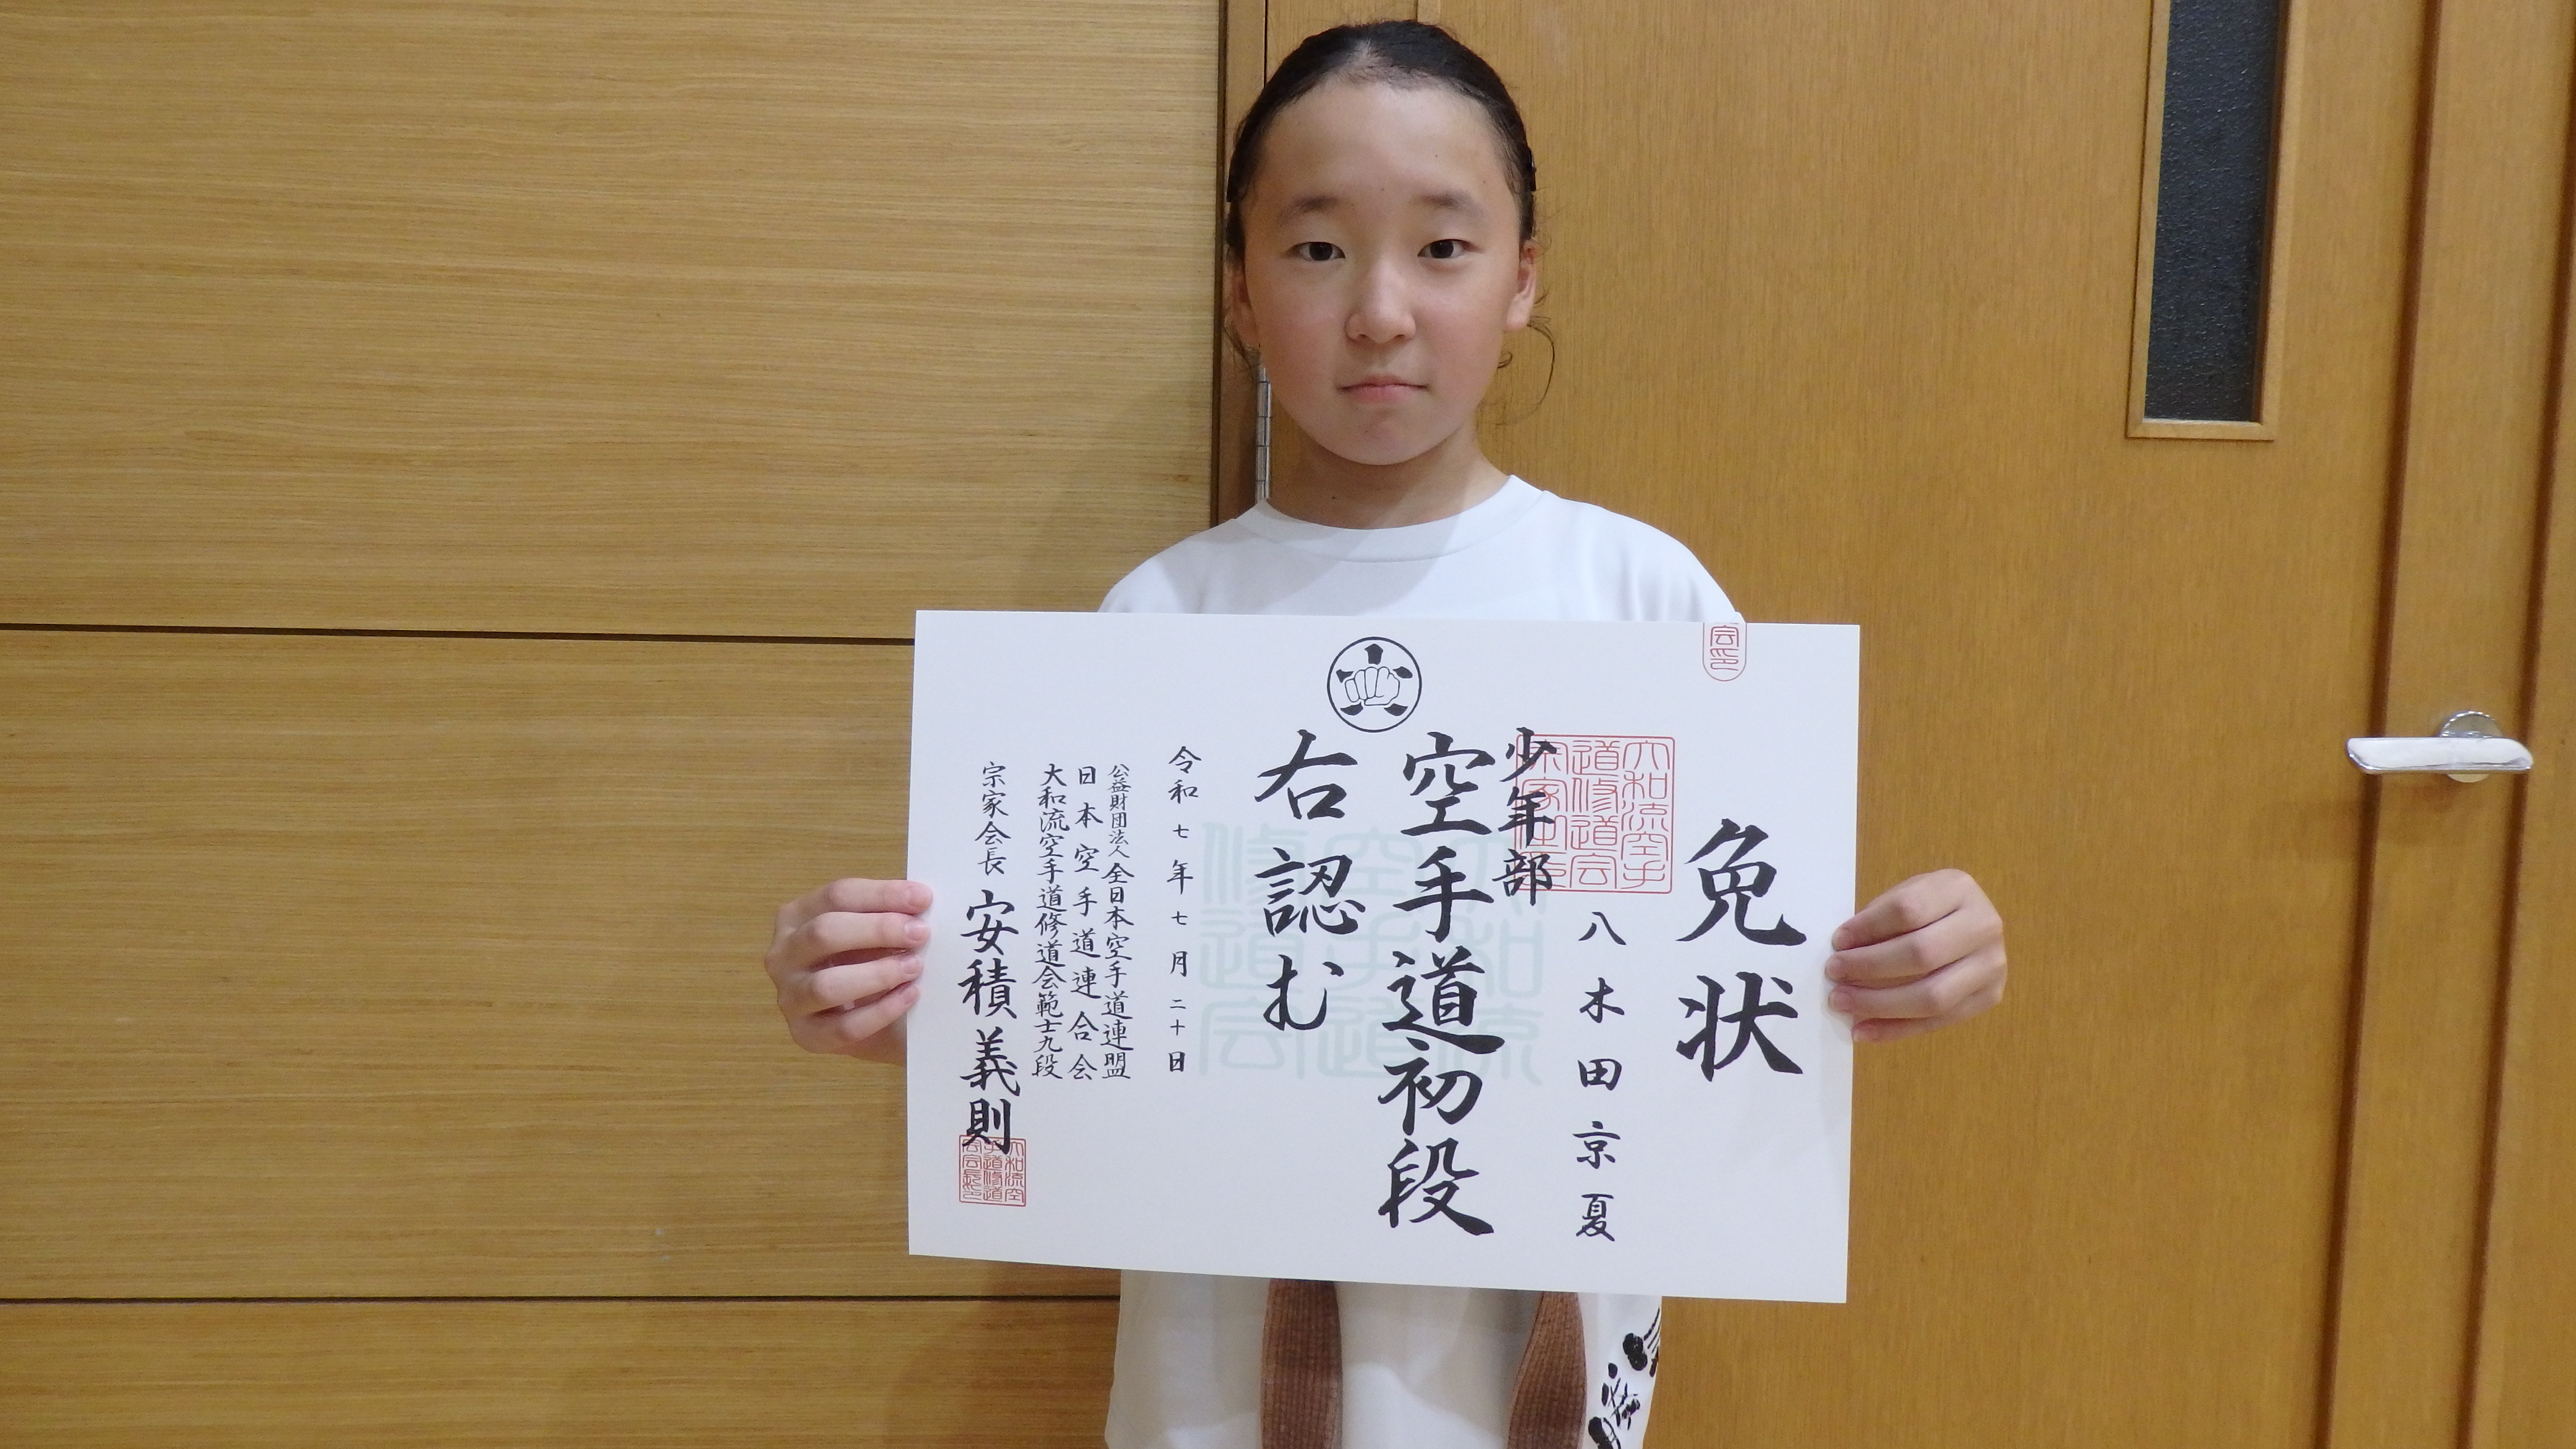 免状
会印
大和流空手
道修道会
少年部
八木田京夏
空手道初段
右認む
大和流
空手道
修道会
令和七年七月二十日
公益財団法人全日本空手道連盟
日本空手道連合会
大和流空手道修道会範士九段
宗家会長 安積義則
大和流空
手道修道
会会長印